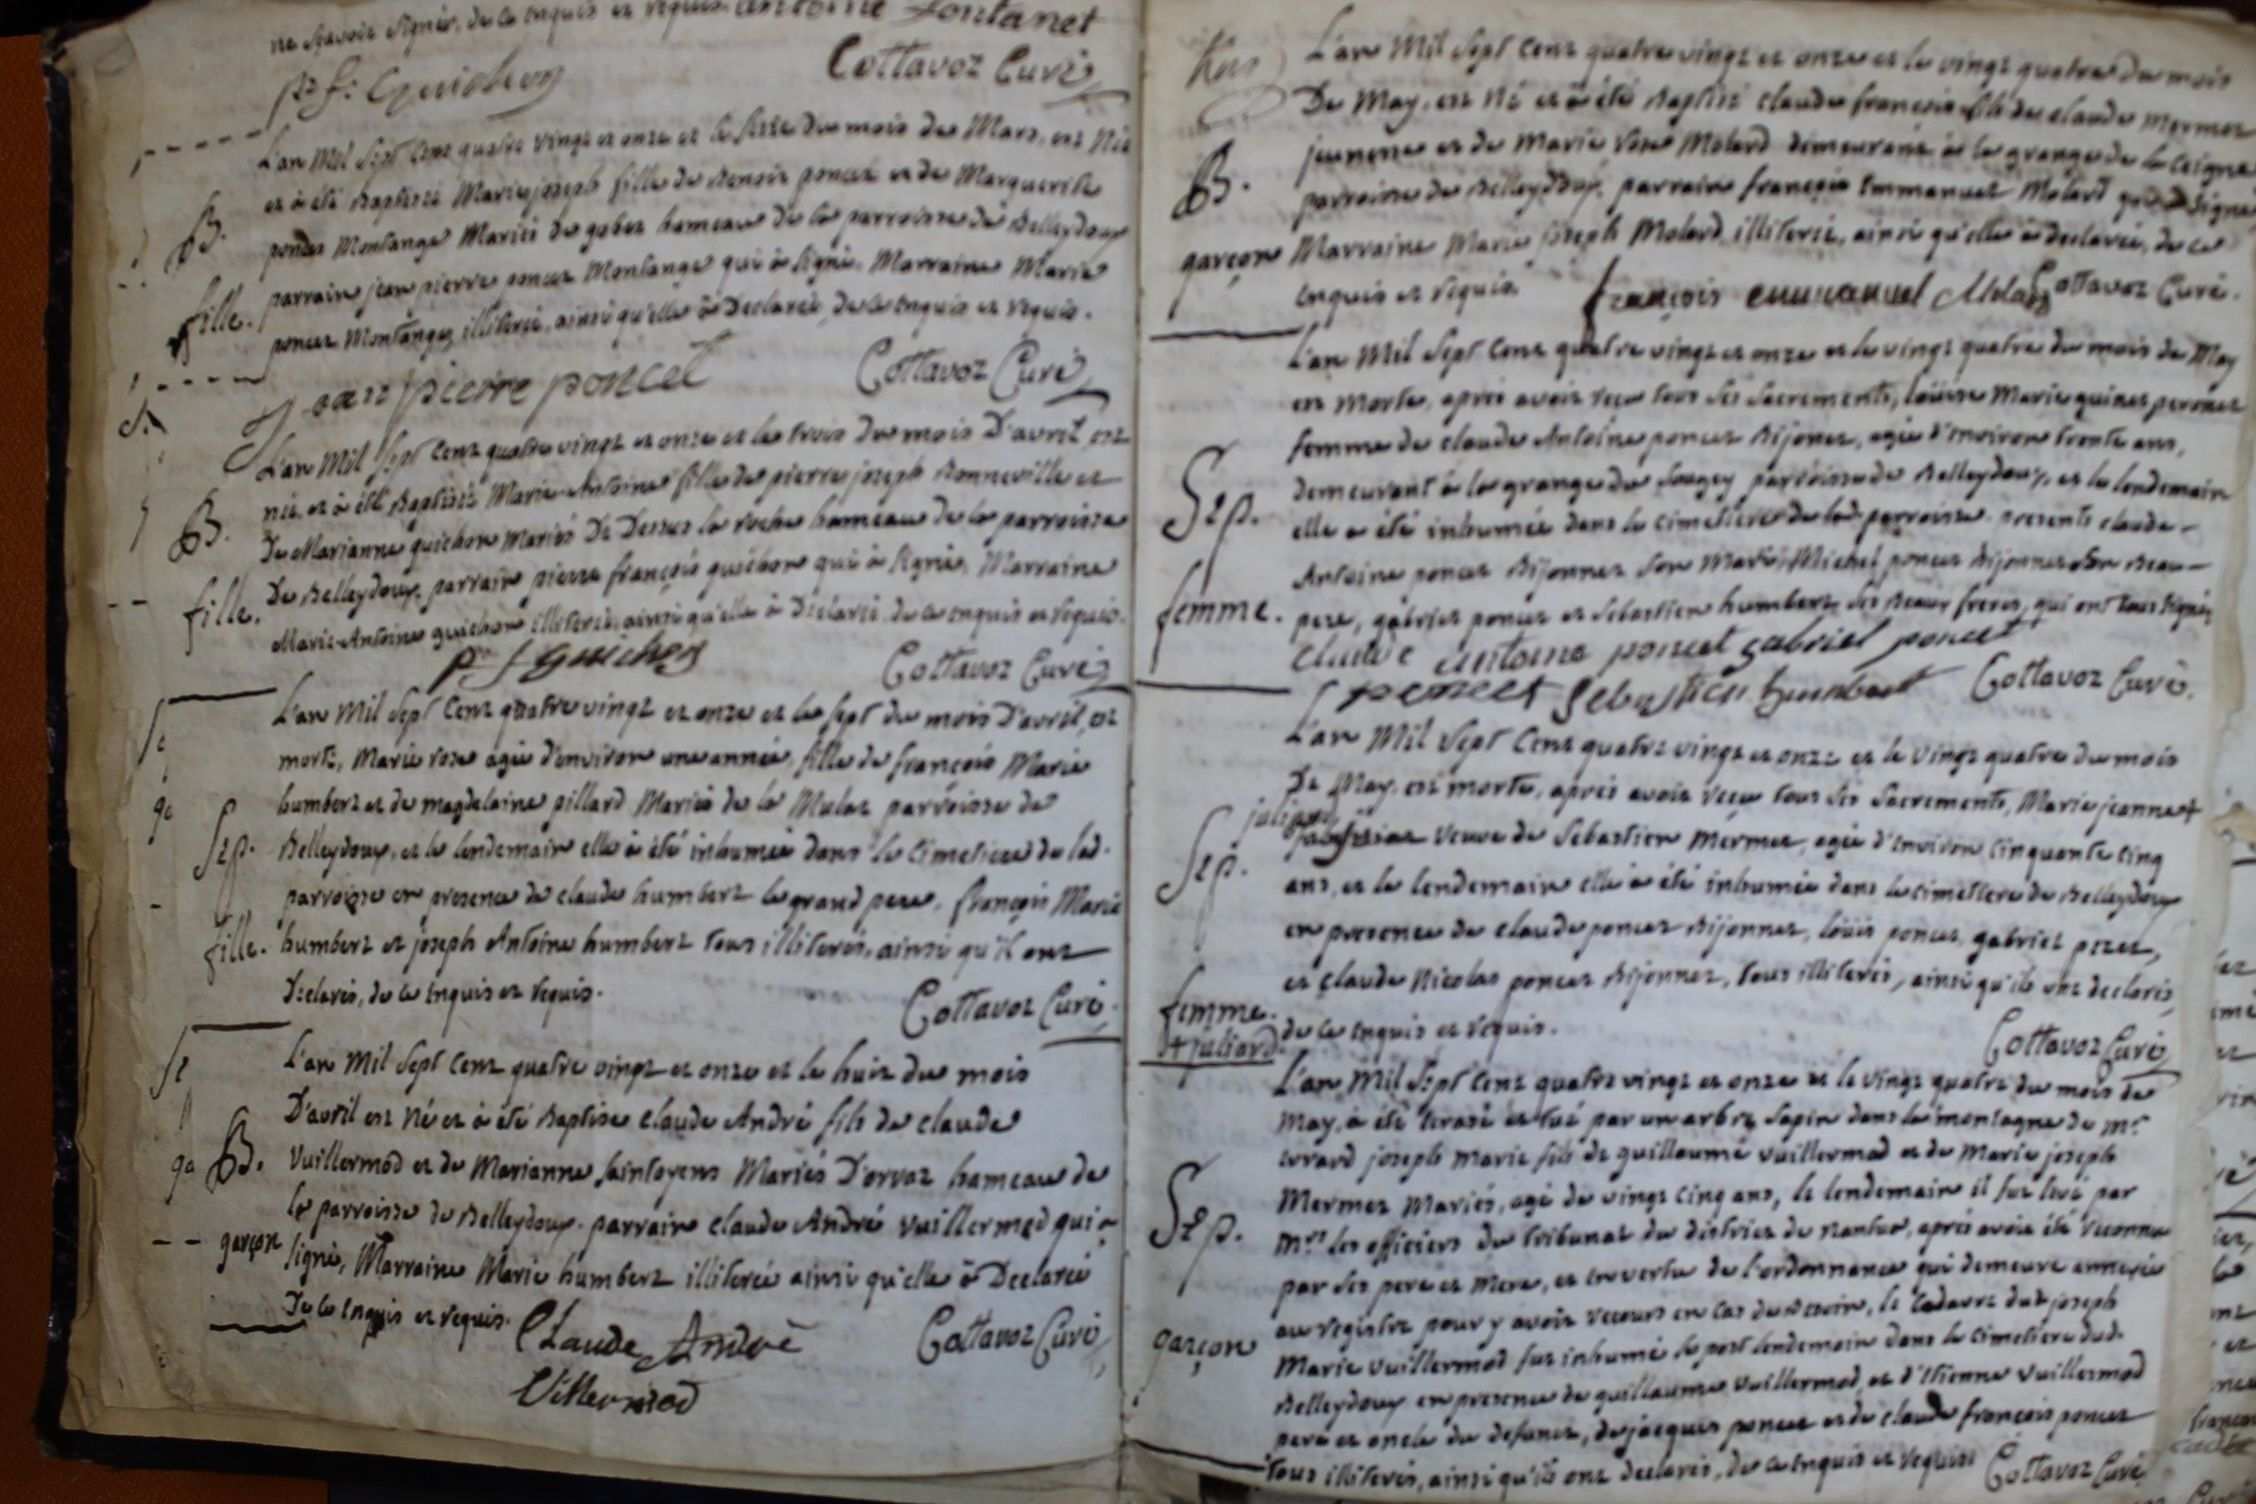 ne sçavoir signer, de ce enquis et requis. antoine fontanet
p.re f: Guichon
Cottavoz Curé
L'an Mil Sept Cent quatre vingt et onze et le seize du mois de Mars, est Née
et à été Baptisée Marie joseph fille de Benoit poncet et de Marguerite
poncet Montange Mariés de gobet hameau de la parroisse de Belleydoux
parrain jean pierre poncet Montange qui à signé. Marraine Marie
poncet Montange, illiterée, ainsi qu'elle à Declarée, de ce enquis et requis.
B.
fille.
Jean pierre poncet
Cottavoz Curé
L'an Mil Sept Cent quatre vingt et onze et le trois du mois D'avril, est
née, et à été Baptisée Marie-Antoine fille de pierre joseph Bonneville et
De Marianne guichon Mariés De Dessus la roche hameau de la parroisse
De Belleydoux, parrain pierre françois guichon qui à signé, Marraine
Marie-Antoine guichon illiterée, ainsi qu'elle à Declarée, de ce enquis et requis.
B.
fille.
p.re f Guichon
Cottavoz Curé
L'an Mil Sept Cent quatre vingt et onze et le sept du mois D'avril, est
morte, Marie rose agée d'environ une année, fille de françois Marie
humbert et de magdelaine pillard Mariés de la Mulaz parroisse de
Belleydoux, et le lendemain elle à été inhumée dans le cimetiere de lad.
parroisse en presence de claude humbert le grand pere, françois Marie
humbert et joseph Antoine humbert tous illiterés, ainsi qu'il ont
Declarés, de ce enquis et requis.
Sep.
fille.
Cottavoz Curé
L'an Mil Sept Cent quatre vingt et onze et le huit du mois
D'avril est Né et à été Baptisé Claude André fils de claude
Vuillermod et de Marianne Saintoyens Mariés D'orvaz hameau de
la parroisse de Belleydoux. parrain Claude André Vuillermod qui à
signé, Marraine Marie humbert illiterée ainsi qu'elle à Declarée
De ce enquis et requis.
B.
garçon
Claude André
Villermod
Cottavoz Curé
L'an Mil Sept Cent quatre vingt et onze et le vingt quatre du mois
De May, est Né et à été Baptisé claude françois fils de claude Mermet
jeunesse et de Marie rose Molard demeurant à la grange de la
parroisse de Belleydoux. parrain françois Emmanuel Molard qui à signé
Marraine Marie joseph Molard illiterée, ainsi qu'elle à declarée, de ce
enquis et requis.
B.
garçon
françois emmanuel Molard
Cottavoz Curé.
L'an Mil Sept Cent quatre vingt et onze et le vingt quatre du mois de May
est morte, après avoir reçu tous ses Sacrements, Loüise Marie peronet
femme de claude Antoine poncet Bijonet, agée d'environ trente ans,
demeurant à la grange du Sougey parroisse de Belleydoux, et le lendemain
elle à été inhumée dans le cimetiere de lad. parroisse. presents claude-
Antoine poncet Bijonnet son Mari, Michel poncet Bijonnet son Beau-
pere, gabriel poncet et Sebastien humbert, ses Beaux freres, qui ont tous signés,
Sep.
femme.
claude antoine poncet gabriel poncet
poncet Sebastien humbert
Cottavoz Curé.
L'an Mil Sept Cent quatre vingt et onze et le vingt quatre du mois
De May, est morte, après avoir reçu tous ses Sacrements, Marie jeanne +
Veuve de Sebastien Mermet, agée d'environ Cinquante Cinq
ans, et le lendemain elle à été inhumée dans le cimetiere de Belleydoux
en presence de claude poncet Bijonnet, Loüis poncet, gabriel peret,
et Claude Nicolas poncet Bijonnet, tous illiterés, ainsi qu'ils ont declarés,
de ce enquis et requis.
Sep.
femme.
+ juliard
Cottavoz Curé
L'an Mil Sept Cent quatre vingt et onze et le vingt quatre du mois de
May, à été ecrasé et tué par un arbre Sapin dans la montagne de M.r
evrard joseph marie fils de guillaume Vuillermod et de Marie joseph
Mermet Mariés, agé de vingt Cinq ans, le lendemain il fut levé par
M.rs les officiers du tribunal du district de Nantua, après avoir été reconnu
par ses pere et mere, et en vertu de l'ordonnance qui demeure annexée
au registre pour y avoir recours en cas de Besoin, le cadavre dud. joseph
Marie Vuillermod fut inhumé le post lendemain dans le cimetiere dud.
Belleydoux en presence de guillaume Vuillermod, et d'Etienne Vuillermod
pere et oncle du defunct, de jacques poncet et de claude françois poncet
tous illiterés, ainsi qu'ils ont declarés, de ce enquis et requis.
Sep.
garçon
Cottavoz Curé